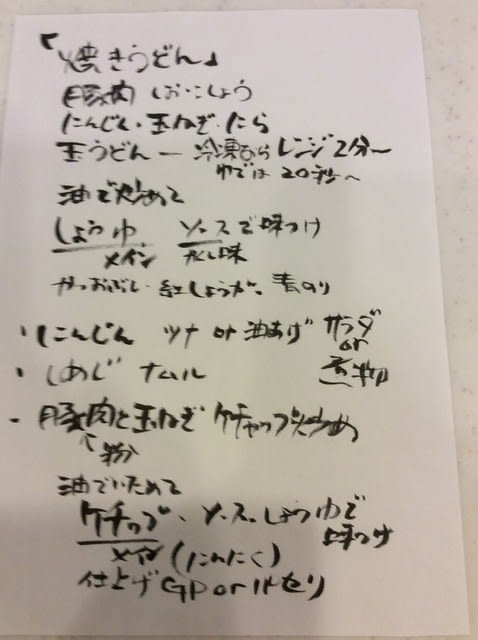 「焼きうどん」
豚肉 しお・こしょう
にんじん・玉ねぎ・にら
玉うどん ー 冷凍なら レンジ2分〜
ゆでは 20秒〜
油で炒めて
しょうゆ ソースで味つけ
メイン かくし味
かつおぶし・紅しょうが・青のり
・にんじん ツナ or 油あげ サラダ or 煮物
・しめじ ナムル
・豚肉と玉ねぎ ケチャップ炒め
↑粉
油でいためて
ケチャップ・ソース・しょうゆで 味つけ
メイン (にんにく)
仕上げ GP or パセリ